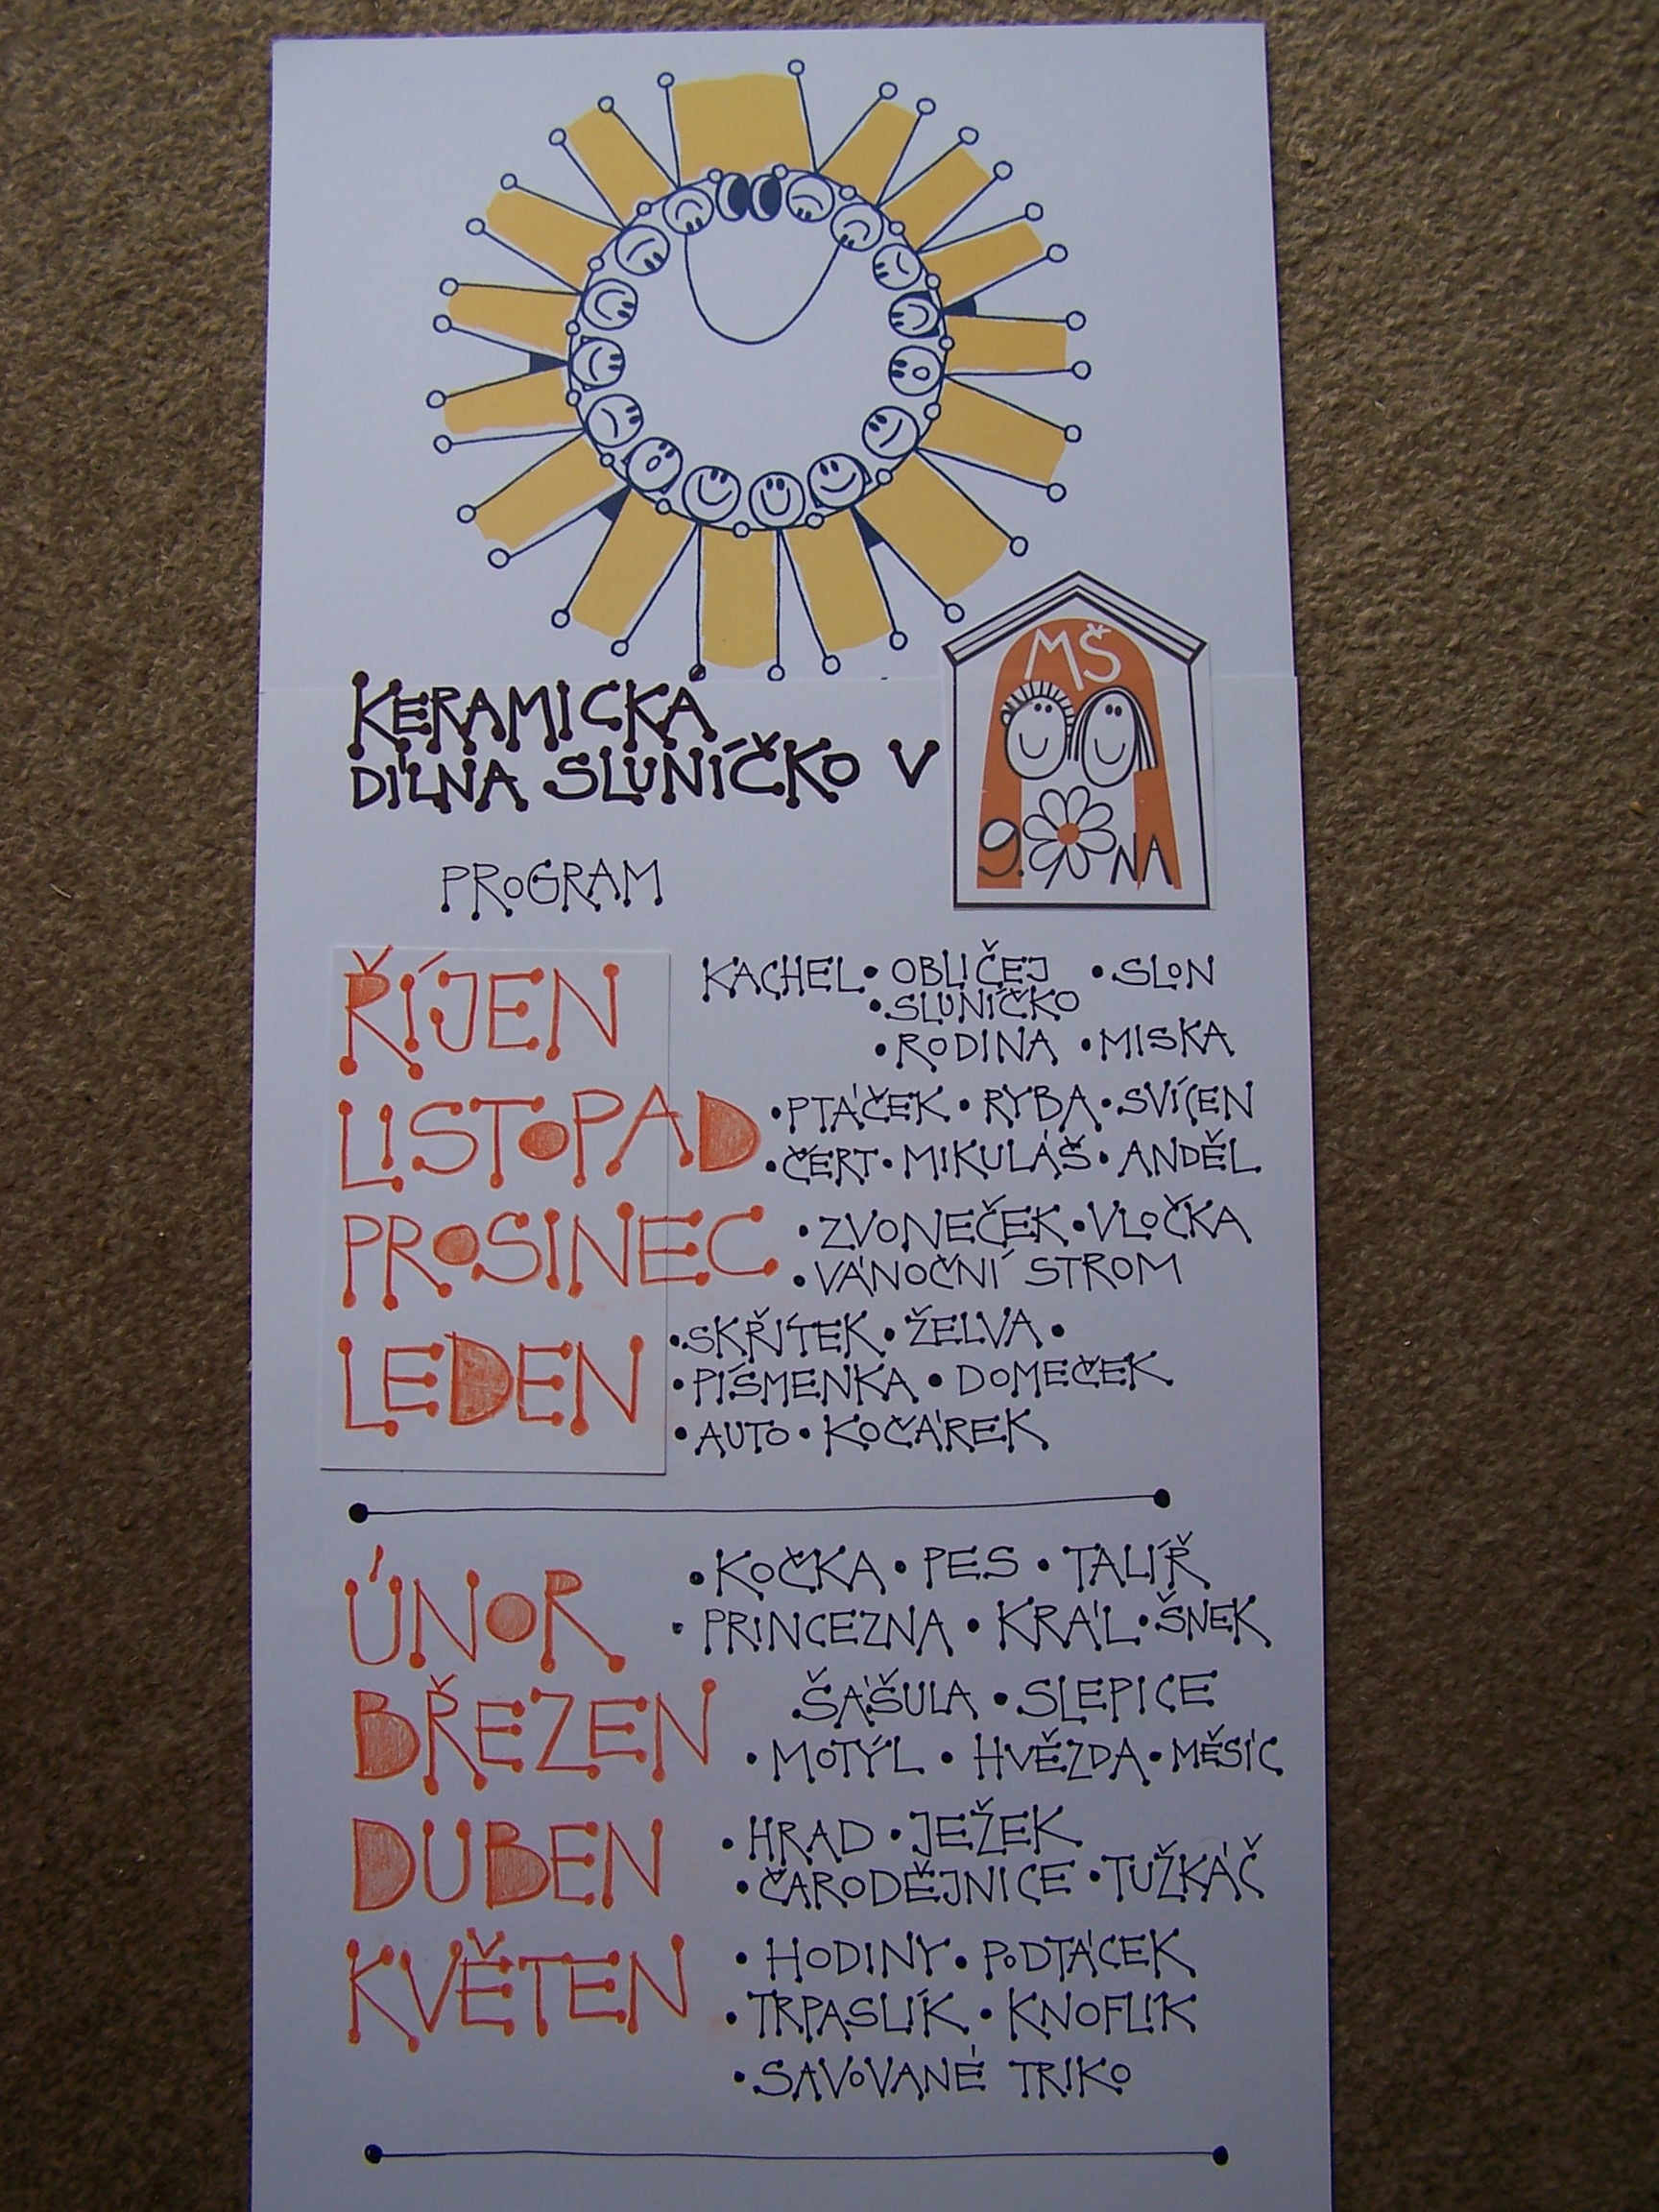 KERAMICKÁ
DÍLNA SLUNÍČKO V
MŠ
9. NA
PROGRAM
ŘÍJEN
KACHEL • OBLIČEJ • SLON
• SLUNÍČKO
• RODINA • MISKA
LISTOPAD
• PTÁČEK • RYBA • SVÍCEN
• ČERT • MIKULÁŠ • ANDĚL
PROSINEC
• ZVONEČEK • VLOČKA
• VÁNOČNÍ STROM
LEDEN
• SKŘÍTEK • ŽELVA •
• PÍSMENKA • DOMEČEK
• AUTO • KOČÁREK
ÚNOR
• KOČKA • PES • TALÍŘ
• PRINCEZNA • KRÁL • ŠNEK
BŘEZEN
ŠAŠULA • SLEPICE
• MOTÝL • HVĚZDA • MĚSÍC
DUBEN
• HRAD • JEŽEK
• ČARODĚJNICE • TUŽKÁČ
KVĚTEN
• HODINY • PODTÁCEK
• TRPASLÍK • KNOFLÍK
• SAVOVANÉ TRIKO